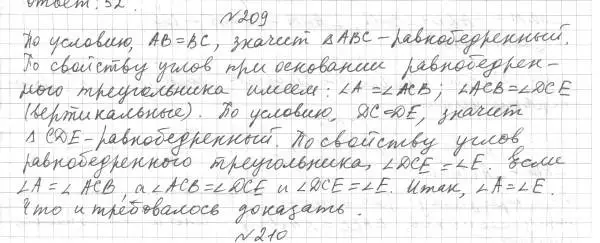 ответ: 52.
№209
По условию, AB=BC, значит △ABC – равнобедренный.
По свойству углов при основании равнобедрен-
ного треугольника имеем: ∠A=∠ACB; ∠ACB=∠DCE
(вертикальные). По условию, DC=DE, значит
△CDE – равнобедренный. По свойству углов
равнобедренного треугольника, ∠DCE=∠E. Если
∠A=∠ACB, а ∠ACB=∠DCE и ∠DCE=∠E. Итак, ∠A=∠E.
Что и требовалось доказать.
№210